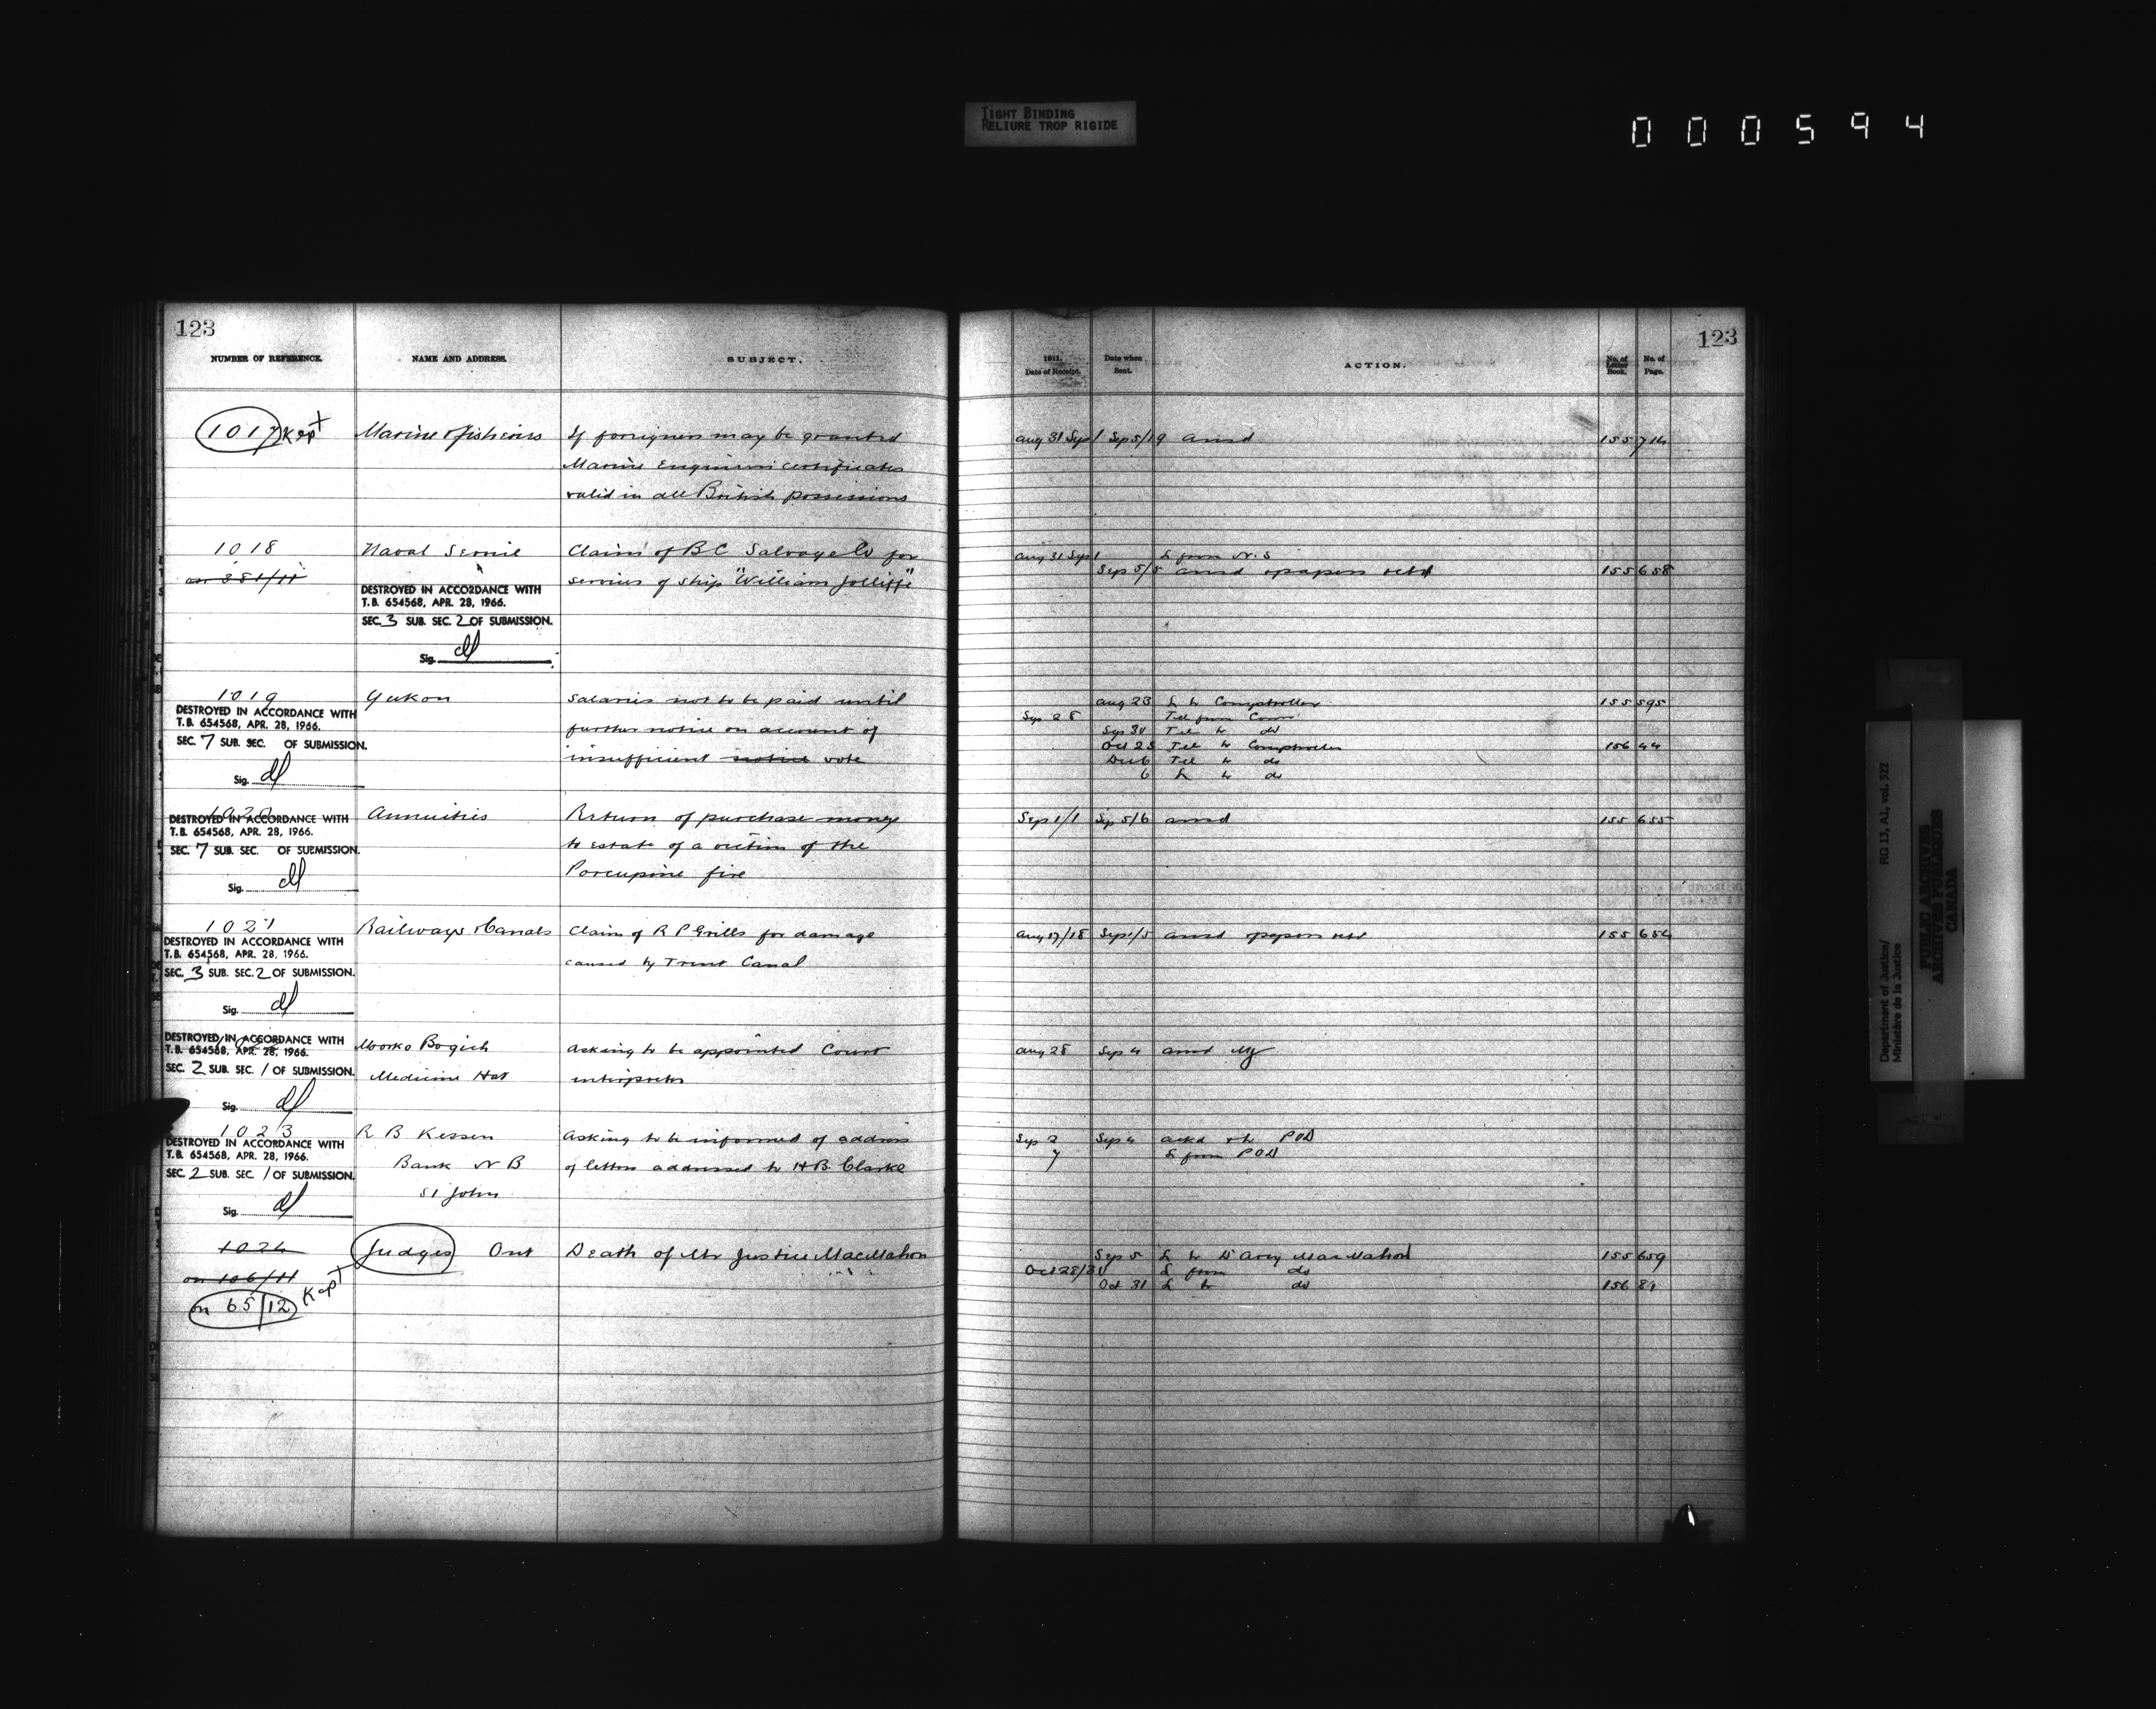 TIGHT BINDING
RELIURE TROP RIGIDE
000594
123
NUMBER OF REFERENCE. NAME AND ADDRESS. SUBJECT.
1017 Kept Marine & Fisheries If foreigners may be granted
Marine Engineers certificates
valid in all British possessions
1018 Naval Service Claim of B C Salvage Co for
on 381/11 services of ship "William Jolliffe"
DESTROYED IN ACCORDANCE WITH
T.B. 654568, APR. 28, 1966.
SEC. 3 SUB. SEC. 2 OF SUBMISSION.
Sig.
1019 Yukon Salaries not to be paid until
DESTROYED IN ACCORDANCE WITH
T.B. 654568, APR. 28, 1966.
further notice on account of
SEC. 7 SUB. SEC. OF SUBMISSION.
insufficient notice vote
Sig.
1020 Annuities Return of purchase money
DESTROYED IN ACCORDANCE WITH
T.B. 654568, APR. 28, 1966.
to estate of a victim of the
SEC. 7 SUB. SEC. OF SUBMISSION.
Porcupine fire
Sig.
1021 Railways & Canals Claim of R P Grills for damage
DESTROYED IN ACCORDANCE WITH
T.B. 654568, APR. 28, 1966.
caused by Trent Canal
SEC. 3 SUB. SEC. 2 OF SUBMISSION.
Sig.
DESTROYED IN ACCORDANCE WITH
T.B. 654568, APR. 28, 1966.
Bogich Asking to be appointed Court
SEC. 2 SUB. SEC. 1 OF SUBMISSION.
Medicine Hat interpreter
Sig.
1023 R B Kessen Asking to be informed of address
DESTROYED IN ACCORDANCE WITH
T.B. 654568, APR. 28, 1966.
Bank N B of letters addressed to H B Clarke
SEC. 2 SUB. SEC. 1 OF SUBMISSION.
St John
Sig.
1024 Judges Ont Death of Mr Justice MacMahon
on 106/11
on 65/12 Kept
123
1911. Date of Receipt. Date when Sent. ACTION. No. of Letter Book. No. of Page.
Aug 31 Sep 1 Sep 5/19 ansd 155 714
Aug 31 Sep 1 L from N.S
Sep 5/5 ansd & papers retd 155 658
Aug 23 L to Comptroller 155 595
Sep 28 Tel from Comr
Sep 30 Tel to do
Oct 25 Tel to Comptroller 156 44
Dec 6 Tel to do
6 L to do
Sep 1/1 Sep 5/6 ansd 155 655
Aug 17/18 Sep 1/5 ansd & papers retd 155 654
Aug 28 Sep 4 ansd
Sep 2 Sep 4 ackd & to POD
7 L from POD
Sep 5 L to D'Arcy MacMahon 155 659
Oct 28/30 L from do
Oct 31 L to do 156 84
Department of Justice/ RG 13, A1, vol. 522
Ministère de la Justice
PUBLIC ARCHIVES
ARCHIVES PUBLIQUES
CANADA